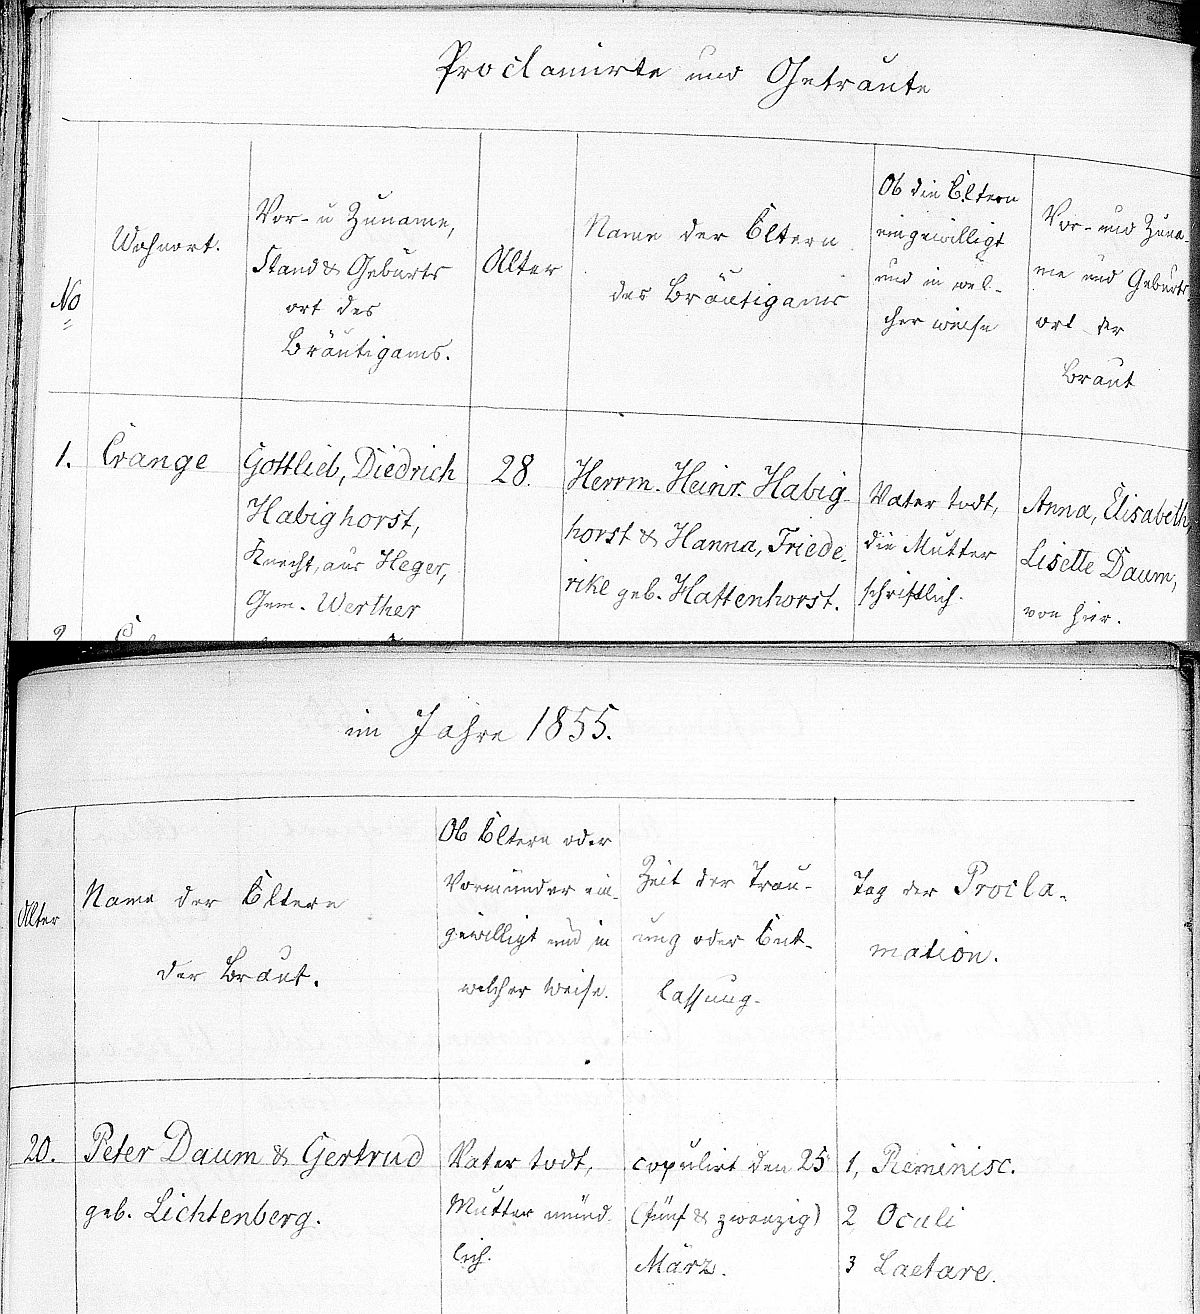 Proclamirte und Getraute
No
Wohnort.
Vor- u Zuname,
Stand & Geburts
ort des
Bräutigams.
Alter
Name der Eltern
des Bräutigams
Ob die Eltern
eingewilligt
und in wel-
cher weise
Vor- und Zuna-
me und Geburts
ort der
Braut
1.
Crange
Gottlieb, Diedrich
Habighorst,
Knecht, aus Heger,
Gem. Werther
28.
Herrm. Heinr. Habig-
horst & Hanna, Friede-
rike geb. Hattenhorst.
Vater todt,
die Mutter
schriftlich.
Anna, Elisabeth,
Lisette Daum,
von hier.
2.
im Jahre 1855.
Alter
Name der Eltern
der Braut.
Ob Eltern oder
Vormünder ein-
gewilligt und in
welcher Weise.
Zeit der Trau-
ung oder Ent-
lassung.
Tag der Procla-
mation.
20.
Peter Daum & Gertrud
geb. Lichtenberg.
Vater todt,
Mutter münd-
lich.
copulirt den 25
(fünf & zwanzig)
März.
1, Reminisc.
2 Oculi
3 Laetare.